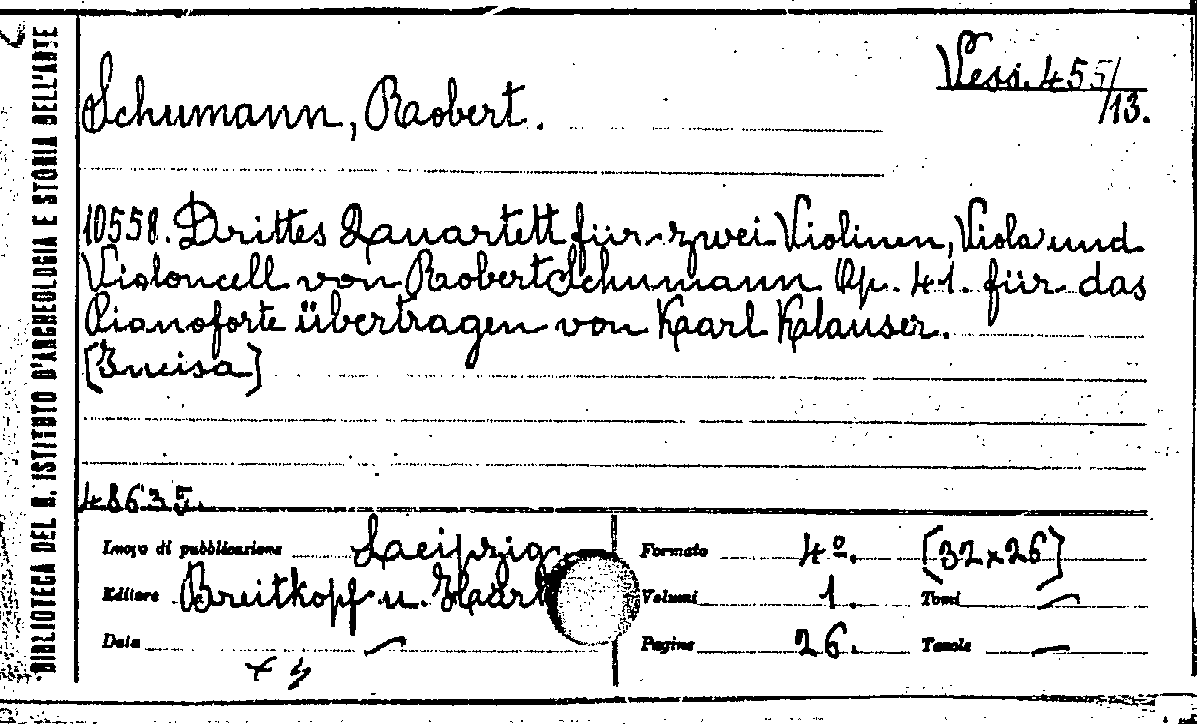 BIBLIOTECA DEL R. ISTITUTO D'ARCHEOLOGIA E STORIA DELL'ARTE
Vess. 455/13.
Schumann, Robert.
10558. Drittes Quartett für zwei Violinen, Viola und
Violoncell von Robert Schumann Op. 41. für das
Pianoforte übertragen von Karl Klauser.
[Incisa]
48635.
Luogo di pubblicazione Leipzig
Formato 4º. [32x26]
Editore Breitkopf u. Härt
Volumi 1. Tomi —
Data —
Pagine 26. Tavole —